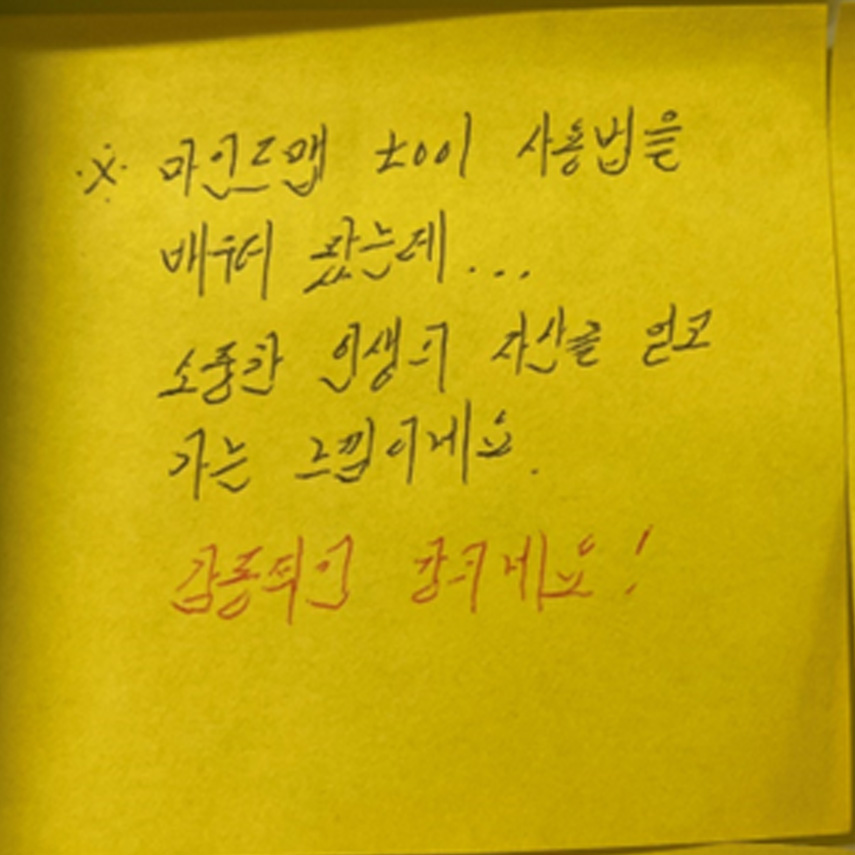 ※ 마인드맵 tool 사용법을
배우러 왔는데...
소중한 인생의 자산을 얻고
가는 느낌이네요.
감동적인 강의네요!